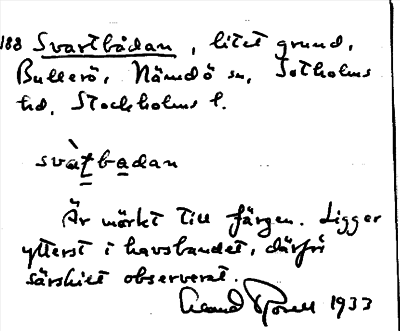 188 Svartbådan, litet grund,
Bullerö, Nämdö sn, Sotholms
hd, Stockholms l.
svàtbadan
Är mörkt till färgen. Ligger
ytterst i havsbandet, därför
särskilt observerat.
1933